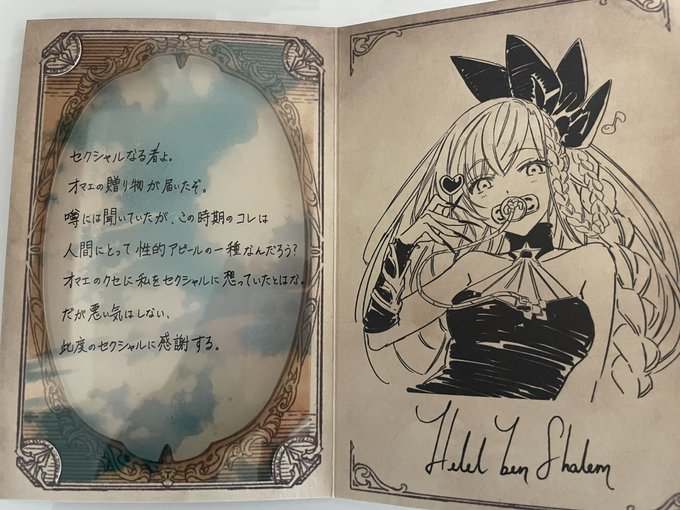 セクシャルなる者よ。
オマエの贈り物が届いたぞ。
噂には聞いていたが、この時期のコレは
人間にとって性的アピールの一種なんだろう?
オマエのクセに私をセクシャルに想っていたとはな。
だが悪い気はしない、
此度のセクシャルに感謝する。
Helel ben Shalem